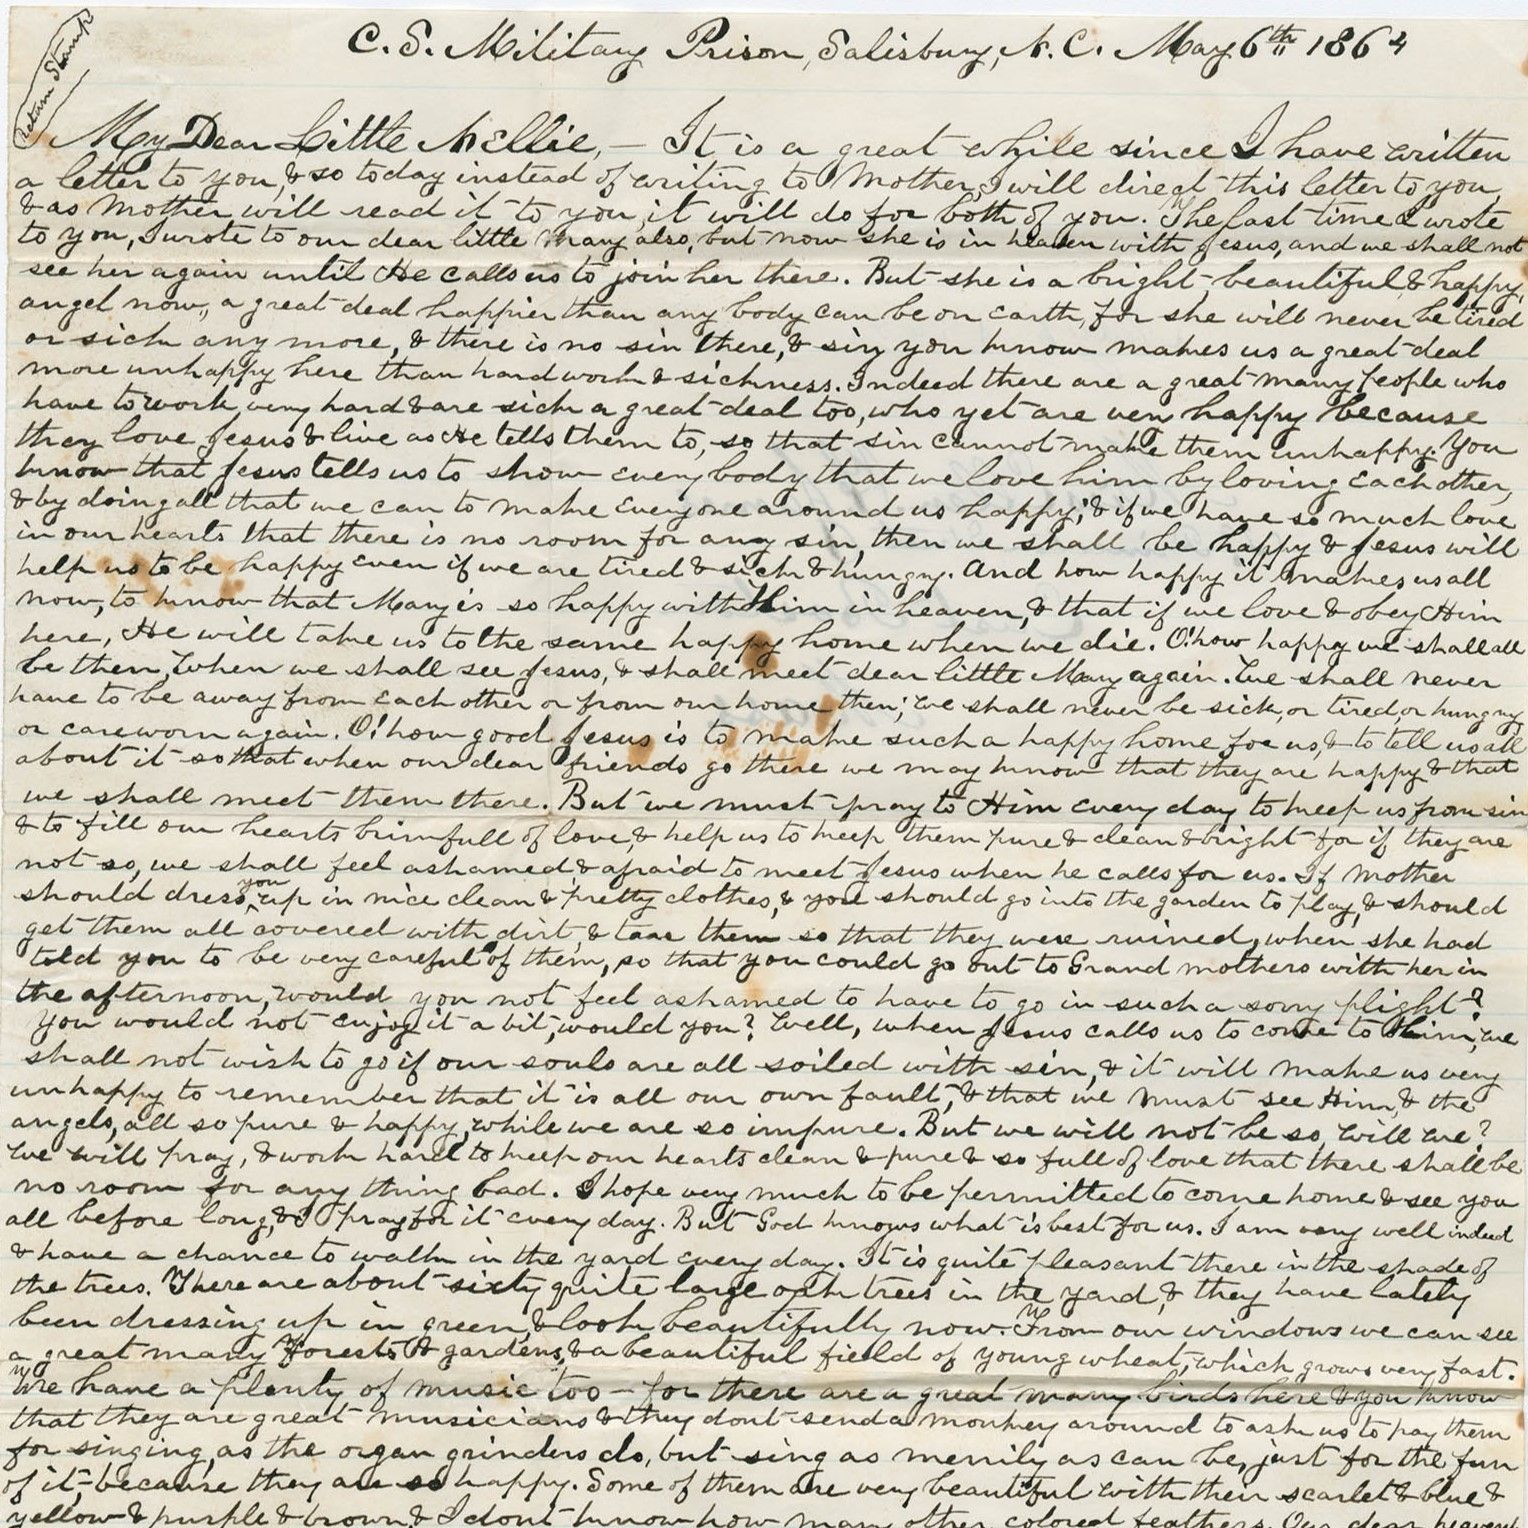 return stamp
C. S. Military Prison, Salisbury, N. C. May 6th 1864
My Dear Little Nellie, — It is a great while since I have written
a letter to you, & so today instead of writing to Mother, I will direct this letter to you,
& as Mother will read it to you, it will do for both of you. The last time I wrote
to you, I wrote to our dear little Mary also, but now she is in heaven with Jesus, and we shall not
see her again until He calls us to join her there. But she is a bright, beautiful & happy,
angel now, a great deal happier than any body can be on earth, for she will never be tired
or sick any more, & there is no sin there, & sin, you know makes us a great deal
more unhappy here than hard work & sickness. Indeed there are a great many people who
have to work very hard & are sick a great deal too, who yet are very happy because
they love Jesus & live as He tells them to, so that sin cannot make them unhappy. You
know that Jesus tells us to show every body that we love him by loving each other,
& by doing all that we can to make every one around us happy; & if we have so much love
in our hearts that there is no room for any sin, then we shall be happy & Jesus will
help us to be happy even if we are tired & sick & hungry. And how happy it makes us all
now, to know that Mary is so happy with Him in heaven, & that if we love & obey Him
here, He will take us to the same happy home when we die. O! how happy we shall all
be then, when we shall see Jesus, & shall meet dear little Mary again. We shall never
have to be away from each other or from our home then; we shall never be sick, or tired, or hungry
or careworn again. O! how good Jesus is to make such a happy home for us, & to tell us all
about it so that when our dear friends go there we may know that they are happy & that
we shall meet them there. But we must pray to Him every day to keep us from sin
& to fill our hearts brimfull of love, & help us to keep them pure & clean & bright for if they are
not so, we shall feel ashamed & afraid to meet Jesus when he calls for us. If Mother
should dress you up in nice clean & pretty clothes, & you should go into the garden to play, & should
get them all covered with dirt, & tear them so that they were ruined, when she had
told you to be very careful of them, so that you could go out to Grandmothers with her in
the afternoon, would you not feel ashamed to have to go in such a sorry plight?
You would not enjoy it a bit, would you? Well, when Jesus calls us to come to Him, we
shall not wish to go if our souls are all soiled with sin, & it will make us very
unhappy to remember that it is all our own fault, & that we must see Him, & the
angels, all so pure & happy, while we are so impure. But we will not be so, will we?
We will pray, & work hard to keep our hearts clean & pure & so full of love that there shall be
no room for any thing bad. I hope very much to be permitted to come home & see you
all before long, & I pray for it every day. But God knows what is best for us. I am very well indeed
& have a chance to walk in the yard every day. It is quite pleasant there in the shade of
the trees. There are about sixty quite large oak trees in the yard, & they have lately
been dressing up in green, & look beautifully now. From our windows we can see
a great many forests & gardens, & a beautiful field of young wheat, which grows very fast.
We have a plenty of music too — for there are a great many birds here & you know
that they are great musicians & they dont send a monkey around to ask us to pay them
for singing, as the organ grinders do, but sing as merrily as can be, just for the fun
of it, – because they are so happy. Some of them are very beautiful with their scarlet & blue &
yellow & purple & brown, & I dont know how many other colored feathers. Our dear heavenl